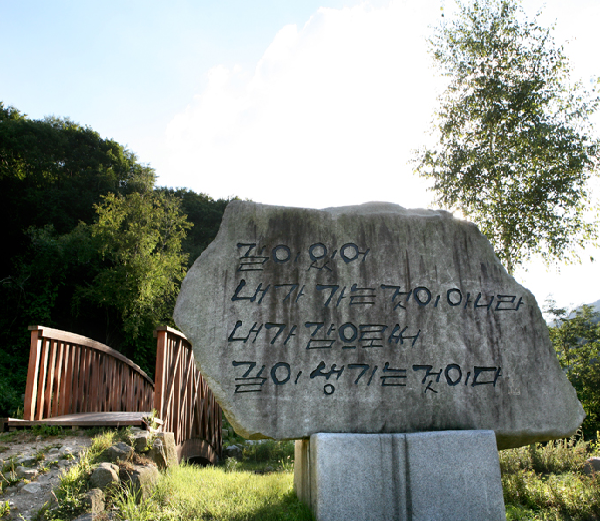 길이 있어
내가 가는 것이 아니라
내가 감으로써
길이 생기는 것이다